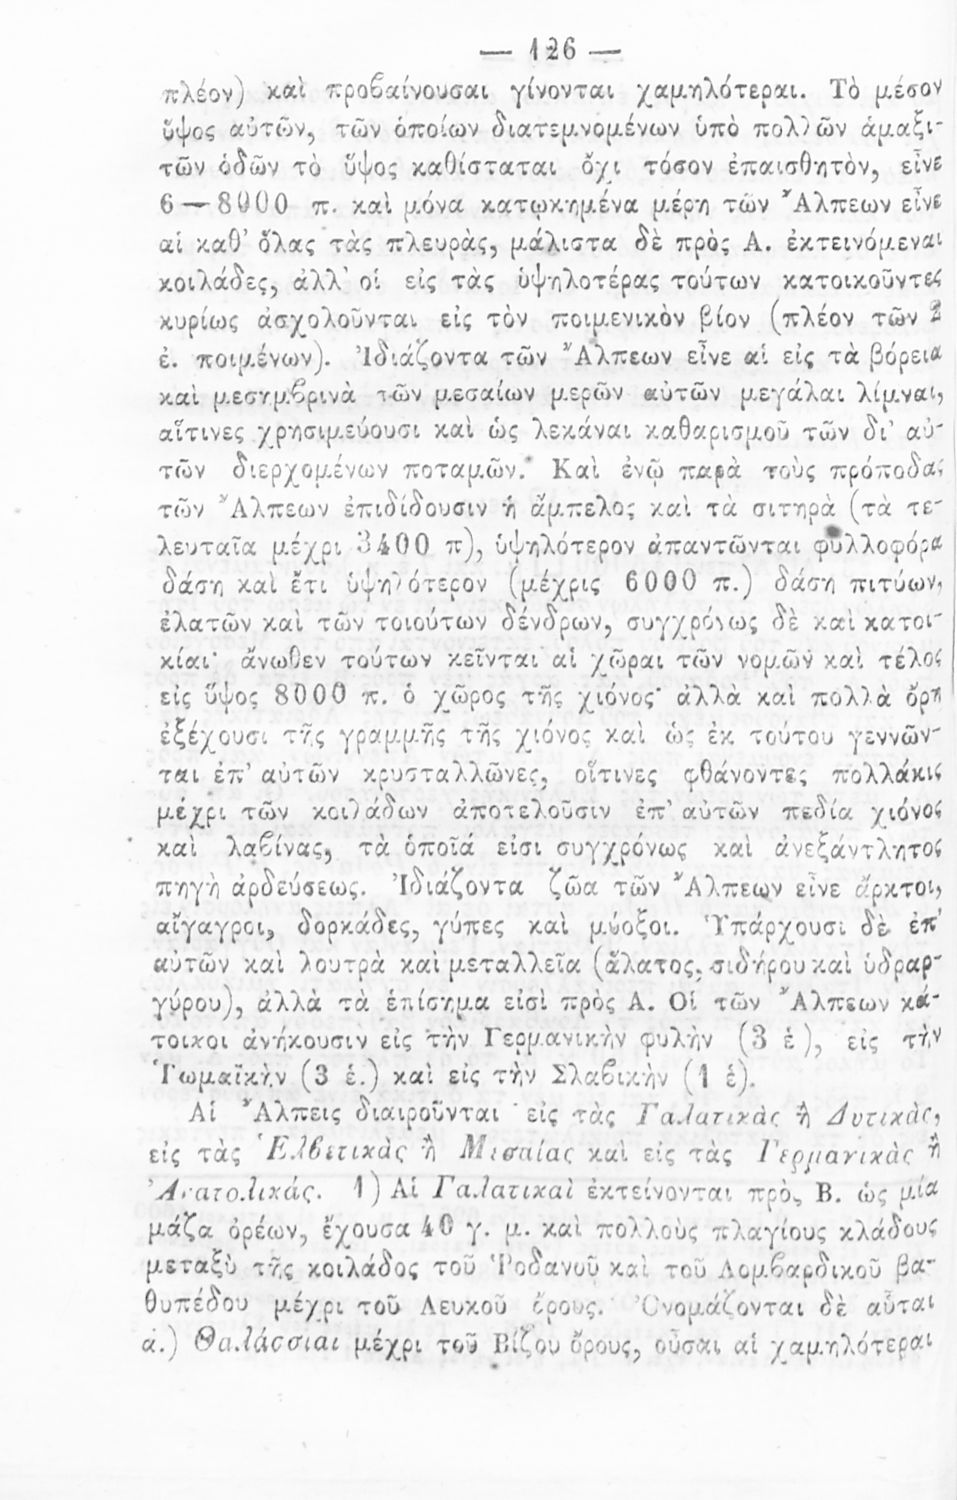 — 126 —
πλέον) καὶ προβαίνουσαι γίνονται χαμηλότεραι. Τὸ μέσον
ὕψος αὐτῶν, τῶν ὁποίων διατεμνομένων ὑπὸ πολλῶν ἁμαξι-
τῶν ὁδῶν τὸ ὕψος καθίσταται ὄχι τόσον ἐπαισθητὸν, εἶνε
6 — 8000 π. καὶ μόνα κατῳκημένα μέρη τῶν Ἄλπεων εἶνε
αἱ καθ’ ὅλας τὰς πλευρὰς, μάλιστα δὲ πρὸς Α. ἐκτεινόμεναι
κοιλάδες, ἀλλ’ οἱ εἰς τὰς ὑψηλοτέρας τούτων κατοικοῦντες
κυρίως ἀσχολοῦνται εἰς τὸν ποιμενικὸν βίον (πλέον τῶν 2
ἑ. ποιμένων). Ἰδιάζοντα τῶν Ἄλπεων εἶνε αἱ εἰς τὰ βόρεια
καὶ μεσημβρινὰ τῶν μεσαίων μερῶν αὐτῶν μεγάλαι λίμναι,
αἵτινες χρησιμεύουσι καὶ ὡς λεκάναι καθαρισμοῦ τῶν δι’ αὐ-
τῶν διερχομένων ποταμῶν. Καὶ ἐνῷ παρὰ τοὺς πρόποδας
τῶν Ἄλπεων ἐπιδίδουσιν ἡ ἄμπελος καὶ τὰ σιτηρὰ (τὰ τε-
λευταῖα μέχρι 3400 π), ὑψηλότερον ἀπαντῶνται φυλλοφόρα
δάση καὶ ἔτι ὑψηλότερον (μέχρις 6000 π.) δάση πιτύων,
ἐλατῶν καὶ τῶν τοιούτων δένδρων, συγχρόνως δὲ καὶ κατοι-
κίαι· ἄνωθεν τούτων κεῖνται αἱ χῶραι τῶν νομῶν καὶ τέλος
εἰς ὕψος 8000 π. ὁ χῶρος τῆς χιόνος· ἀλλὰ καὶ πολλὰ ὄρη
ἐξέχουσι τῆς γραμμῆς τῆς χιόνος καὶ ὡς ἐκ τούτου γεννῶν-
ται ἐπ’ αὐτῶν κρυσταλλῶνες, οἵτινες φθάνοντες πολλάκις
μέχρι τῶν κοιλάδων ἀποτελοῦσιν ἐπ’ αὐτῶν πεδία χιόνος
καὶ λαβίνας, τὰ ὁποῖά εἰσι συγχρόνως καὶ ἀνεξάντλητος
πηγὴ ἀρδεύσεως. Ἰδιάζοντα ζῶα τῶν Ἄλπεων εἶνε ἄρκτοι,
αἴγαγροι, δορκάδες, γύπες καὶ μύοξοι. Ὑπάρχουσι δὲ ἐπ’
αὐτῶν καὶ λουτρὰ καὶ μεταλλεῖα (ἅλατος, σιδήρου καὶ ὑδραρ-
γύρου), ἀλλὰ τὰ ἐπίσημα εἰσὶ πρὸς Α. Οἱ τῶν Ἄλπεων κά-
τοικοι ἀνήκουσιν εἰς τὴν Γερμανικὴν φυλὴν (3 ἑ), εἰς τὴν
Ῥωμαϊκὴν (3 ἑ.) καὶ εἰς τὴν Σλαβικὴν (1 ἑ).
Αἱ Ἄλπεις διαιροῦνται εἰς τὰς Γαλατικὰς ἢ Δυτικὰς,
εἰς τὰς Ἑλβετικὰς ἢ Μεσαίας καὶ εἰς τὰς Γερμανικὰς ἢ
Ἀνατολικάς. 1) Αἱ Γαλατικαὶ ἐκτείνονται πρὸς Β. ὡς μία
μάζα ὀρέων, ἔχουσα 40 γ. μ. καὶ πολλοὺς πλαγίους κλάδους
μεταξὺ τῆς κοιλάδος τοῦ Ῥοδανοῦ καὶ τοῦ Λομβαρδικοῦ βα-
θυπέδου μέχρι τοῦ Λευκοῦ ὄρους. Ὀνομάζονται δὲ αὗται
ά.) Θαλάσσιαι μέχρι τοῦ Βίζου ὄρους, οὖσαι αἱ χαμηλότεραι